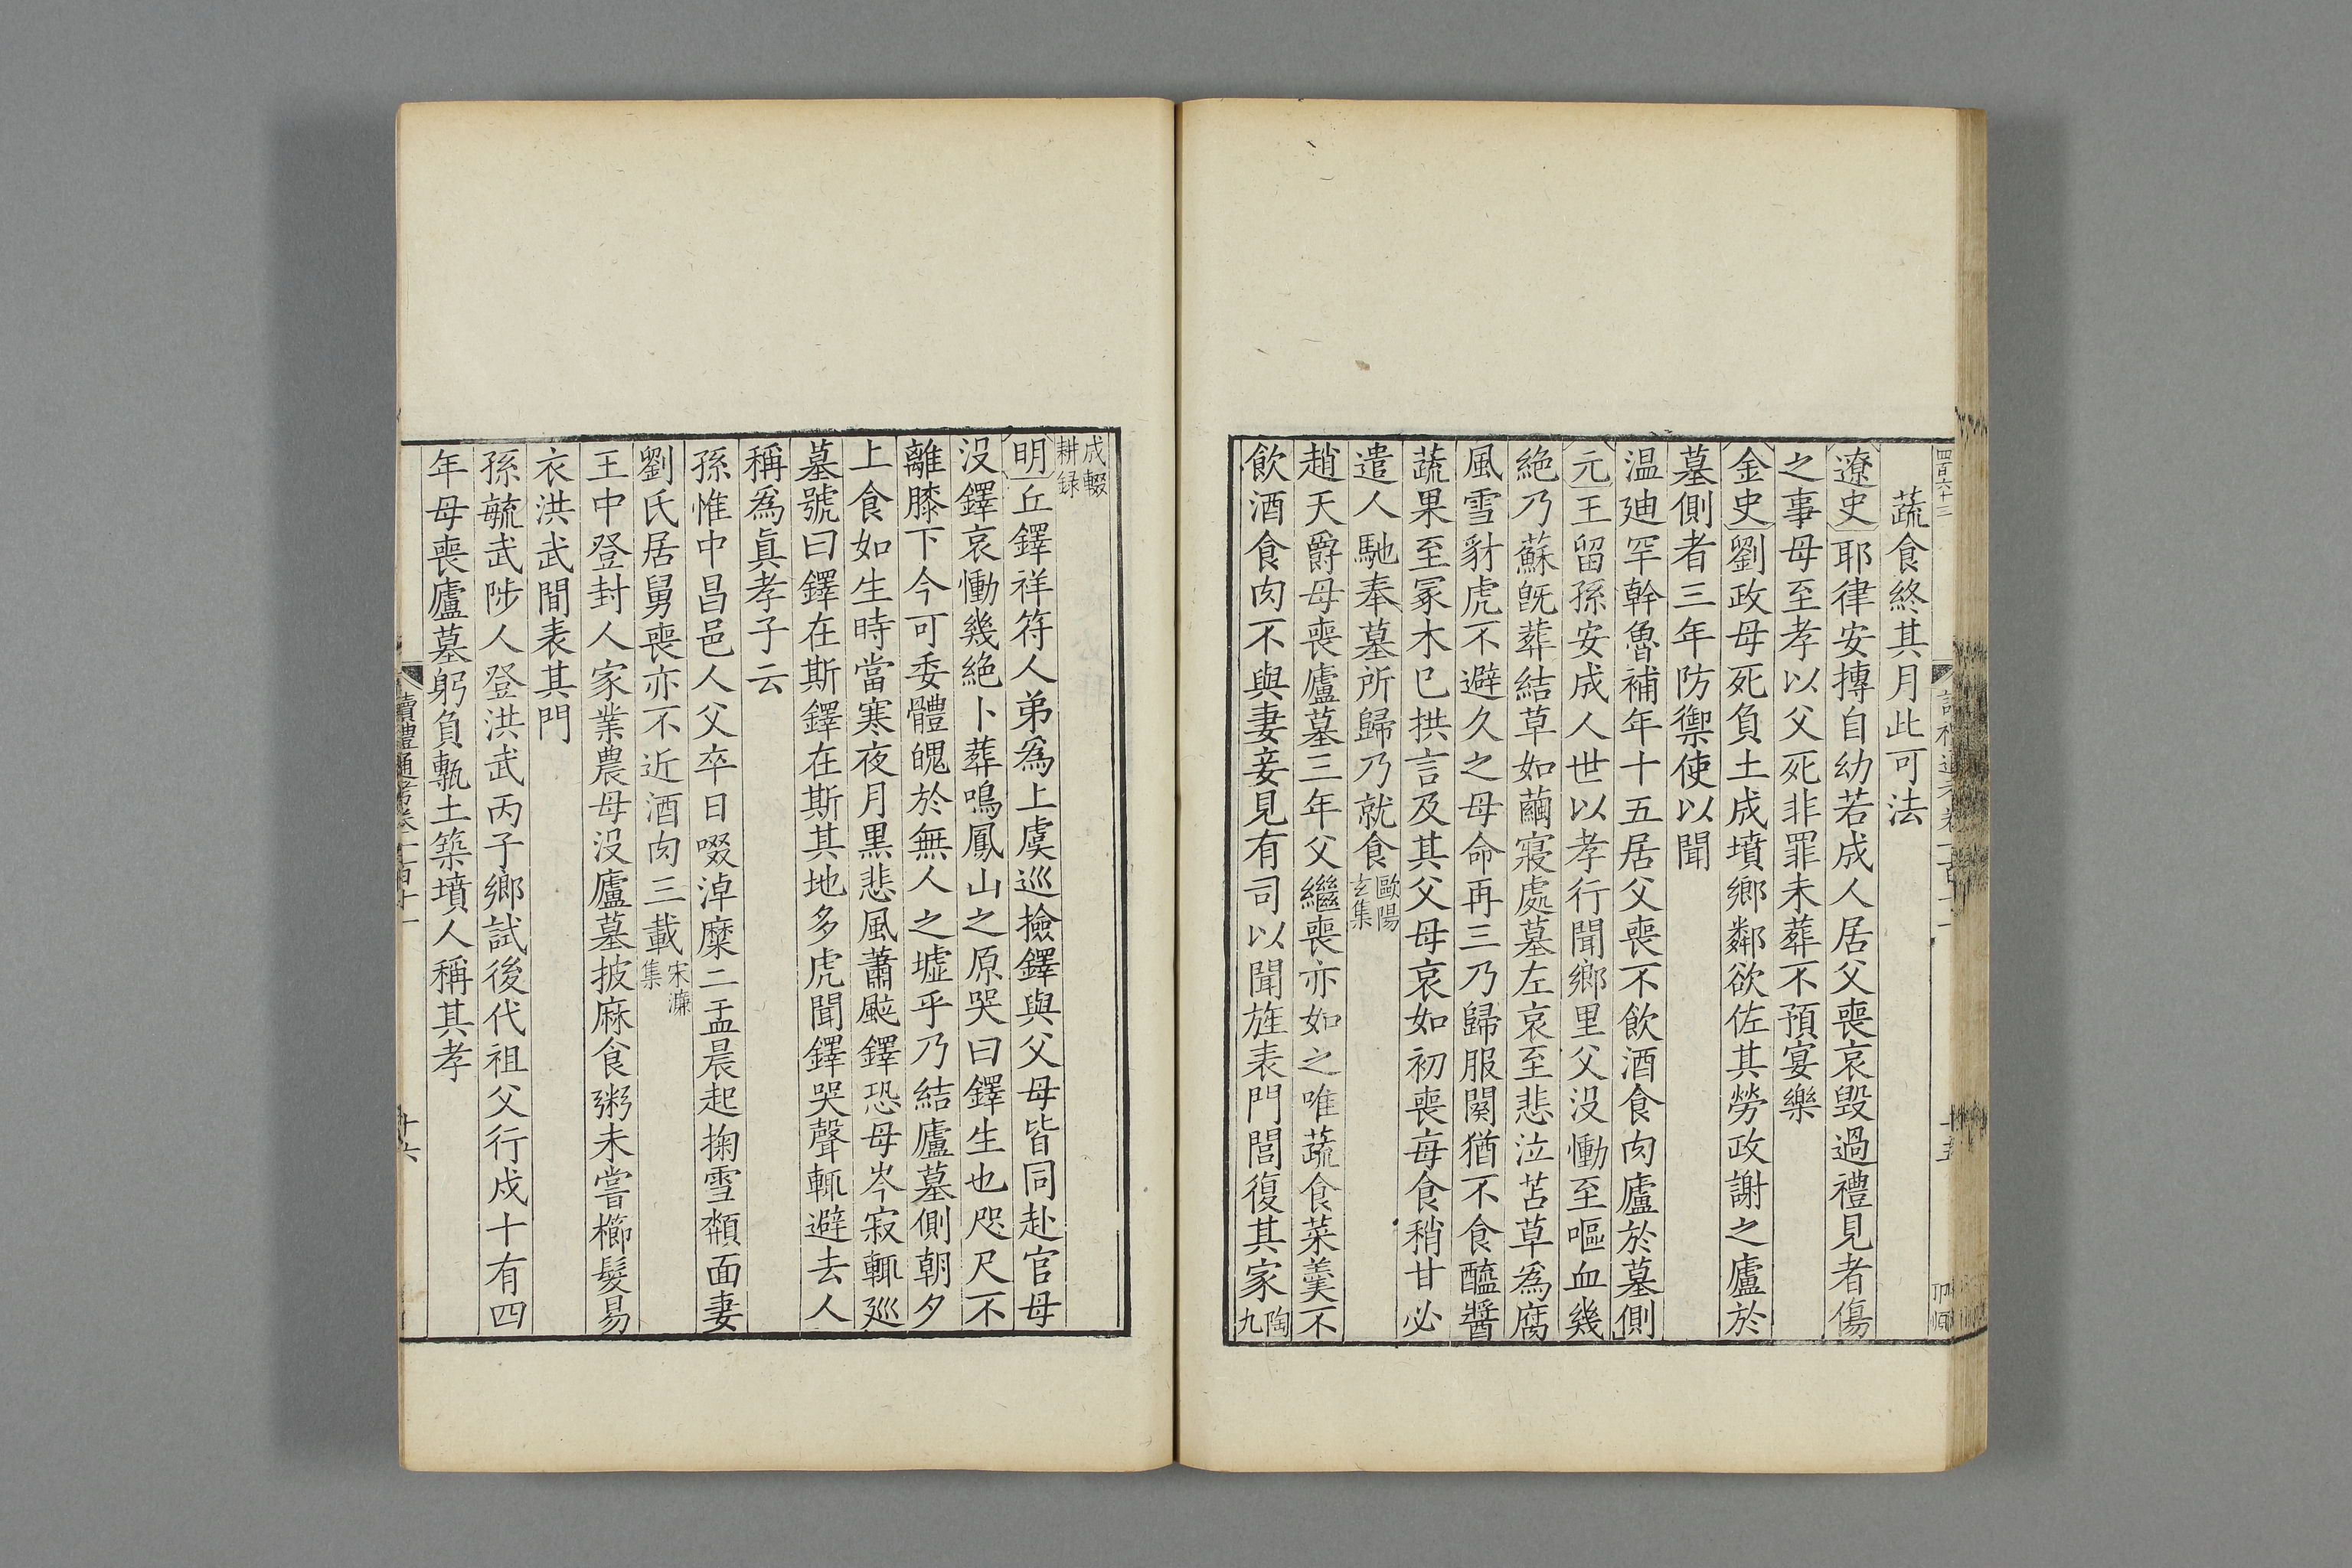 四百六十三
蔬食終其月此可法
遼史耶律安摶自幼若成人居父喪哀毀過禮見者傷
之事母至孝以父死非罪未葬不預宴樂
金史劉政母死負土成墳鄉鄰欲佐其勞政謝之廬於
墓側者三年防禦使以聞
温廸罕幹魯補年十五居父喪不飲酒食肉廬於墓側
元王留孫安成人世以孝行聞鄉里父没慟至嘔血幾
絶乃蘇旣葬結草如繭寢處墓左哀至悲泣苫草爲腐
風雪豺虎不避久之母命再三乃歸服闋猶不食醯醬
蔬果至冡木已拱言及其父母哀如初喪每食稍甘必
遣人馳奉墓所歸乃就食歐陽玄集
趙天爵母喪廬墓三年父繼喪亦如之唯蔬食菜羹不
飲酒食肉不與妻妾見有司以聞旌表門閭復其家陶九
成輟耕録
明丘鐸祥符人弟爲上虞巡撿鐸與父母皆同赴官母
没鐸哀慟幾絶卜葬鳴鳳山之原哭曰鐸生也咫尺不
離膝下今可委體魄於無人之墟乎乃結廬墓側朝夕
上食如生時當寒夜月黒悲風蕭颼鐸恐母岑寂輒廵
墓號曰鐸在斯鐸在斯其地多虎聞鐸哭聲輒避去人
稱爲眞孝子云
孫惟中昌邑人父卒日啜淖糜二盂晨起掬雪頮面妻
劉氏居舅喪亦不近酒肉三載宋濂集
王中登封人家業農母没廬墓披麻食粥未嘗櫛髮易
衣洪武間表其門
孫毓武陟人登洪武丙子鄉試後代祖父行戍十有四
年母喪廬墓躬負甎土築墳人稱其孝
讀禮通考卷一百十一
十六